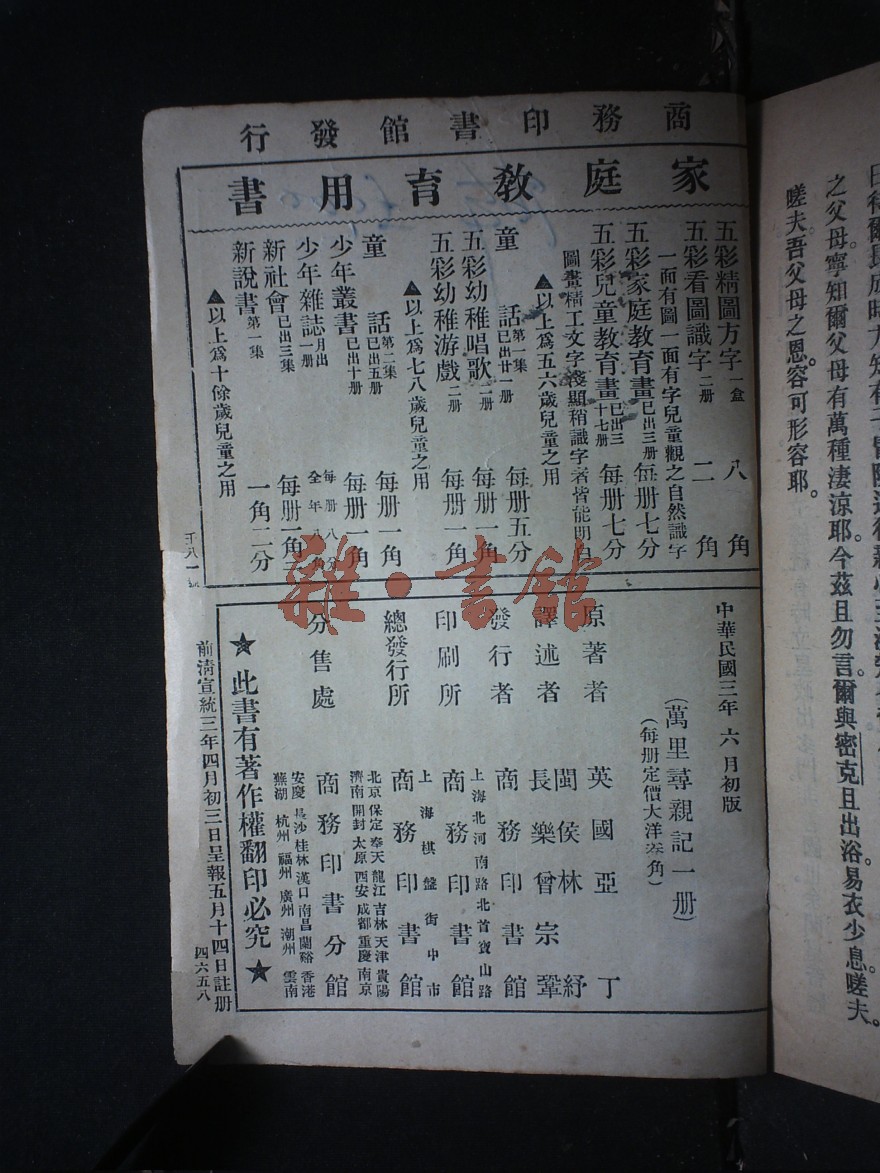 之父母。寧知爾父母有萬種淒涼耶。今茲且勿言。爾與密克且出浴易衣少息。嗟夫。
嗟夫。吾父母之恩。容可形容耶。
商務印書館發行
家庭教育用書
五彩精圖方字 一盒 八角
五彩看圖識字 二册 二角
一面有圖一面有字兒童觀之自然識字
五彩家庭教育畫 已出三册 每册七分
五彩兒童教育畫 已出三十七册 每册七分
圖畫精工文字淺顯稍識字者皆能閱
▲以上爲五六歲兒童之用
童話 第一集 已出廿一册 每册五分
五彩幼稚唱歌 二册 每册一角
五彩幼稚游戲 二册 每册一角
▲以上爲七八歲兒童之用
童話 第二集 已出五册 每册一角
少年叢書 已出十册 每册一角
少年雜誌 月出一册 每册八分 全年八角
新社會 已出三集 每册一角
新說書 第一集 一角二分
▲以上爲十餘歲兒童之用
中華民國三年六月初版
(萬里尋親記一册)
(每册定價大洋叁角)
原著者 英國亞丁
譯述者 閩侯林紓
長樂曾宗鞏
發行者 商務印書館
上海北河南路北首寶山路
印刷所 商務印書館
上海棋盤街中市
總發行所 商務印書館
北京 保定 奉天 龍江 吉林 天津 貴陽
濟南 開封 太原 西安 成都 重慶 南京
分售處 商務印書分館
安慶 長沙 桂林 漢口 南昌 蘭谿 香港
蕪湖 杭州 福州 廣州 潮州 雲南
★此書有著作權翻印必究★
前清宣統三年四月初三日呈報五月十四日註册
四六五八
雜·書館